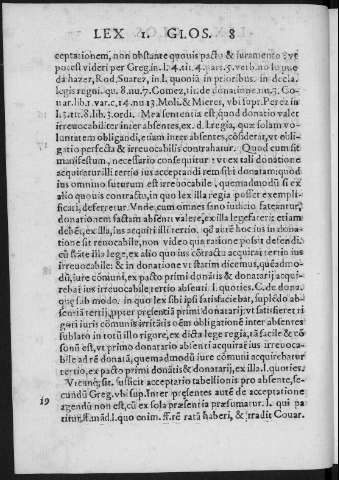 LEX 1. GLOS. 8
ceptationem, non obstante quouis pacto & iuramento: vt
potest videri per Greg. in. l. 4. tit. 4. part. 5. verb. no lo pue
da hazer, Rod. Suarez, in l. quoniā in prioribus. in decla.
legis regni. qu. 8. nu. 7. Gomez, tit. de donatione. nu. 3. Co-
uar. lib. 1. var. c. 14. nu 13. Moli. & Mieres, vbi supr. Perez in
l. 3. tit. 8. lib. 3. ordi. Mea sententia est, quod donatio valet
irreuocabiliter inter absentes, ex. d. l. regia, quæ solam vo-
luntatem obligandi, etiam inter absentes, cōsiderat, vt obli-
gatio perfecta & irreuocabilis contrahatur. Quod cum sit
manifestum, necessario consequitur: vt ex tali donatione
acquiratur illi tertio ius acceptandi rem sibi donatam: quod
ius omnino futurum est irreuocabile, quemadmodū si ex
alio quouis contractu, in quo lex illa regia posset exempli-
ficari, deferretur. Vnde, cum omnes sano iudicio fateantur,
donationem factam absenti valere, ex illa lege fateri: etiam
debēt, ex illa, ius acquiri illi tertio. qđ autē hoc ius in dona-
tione sit reuocabile, non video qua ratione possit defendi.
cū stāte illa lege, ex alio quo ius cōtractu acquirat tertio ius
irreuocabile: & in donatione vt statim dicemus, queadmo-
dū, iure cōmuni, ex pacto primi donātis & donatarij acqui-
rebat ius irreuocabile tertio absenti. l. quoties. C. de dona.
quę sub modo. in quo lex sibi ipsi satisfaciebat, suplēdo ab-
sentiā tertij, ppter præsentiā primi donatarij: vt satisfieret ri
gori iuris cōmunis irritātis oēm obligationē inter absentes
sublato in totū illo rigore, ex dicta lege regia, tā facile & cō
sonū est, vt primo donatario absenti acquirat ius irreuoca-
bile ad rē donatā, quemadmodū iure cōmuni acquirebatur
tertio, ex pacto primi donātis & donatarij, ex illa. l. quoties.
Vtrumq; sit. sufficit acceptatio tabellionis pro absente, se-
cundū Greg. vbi sup. Inter presentes autē de acceptatione
19 agendū non est, cū ex sola præsentia præsumatur. l. qui pa
titur. ff. mād. l. quo enim. ff. rē ratā haberi, & tradit Couar.